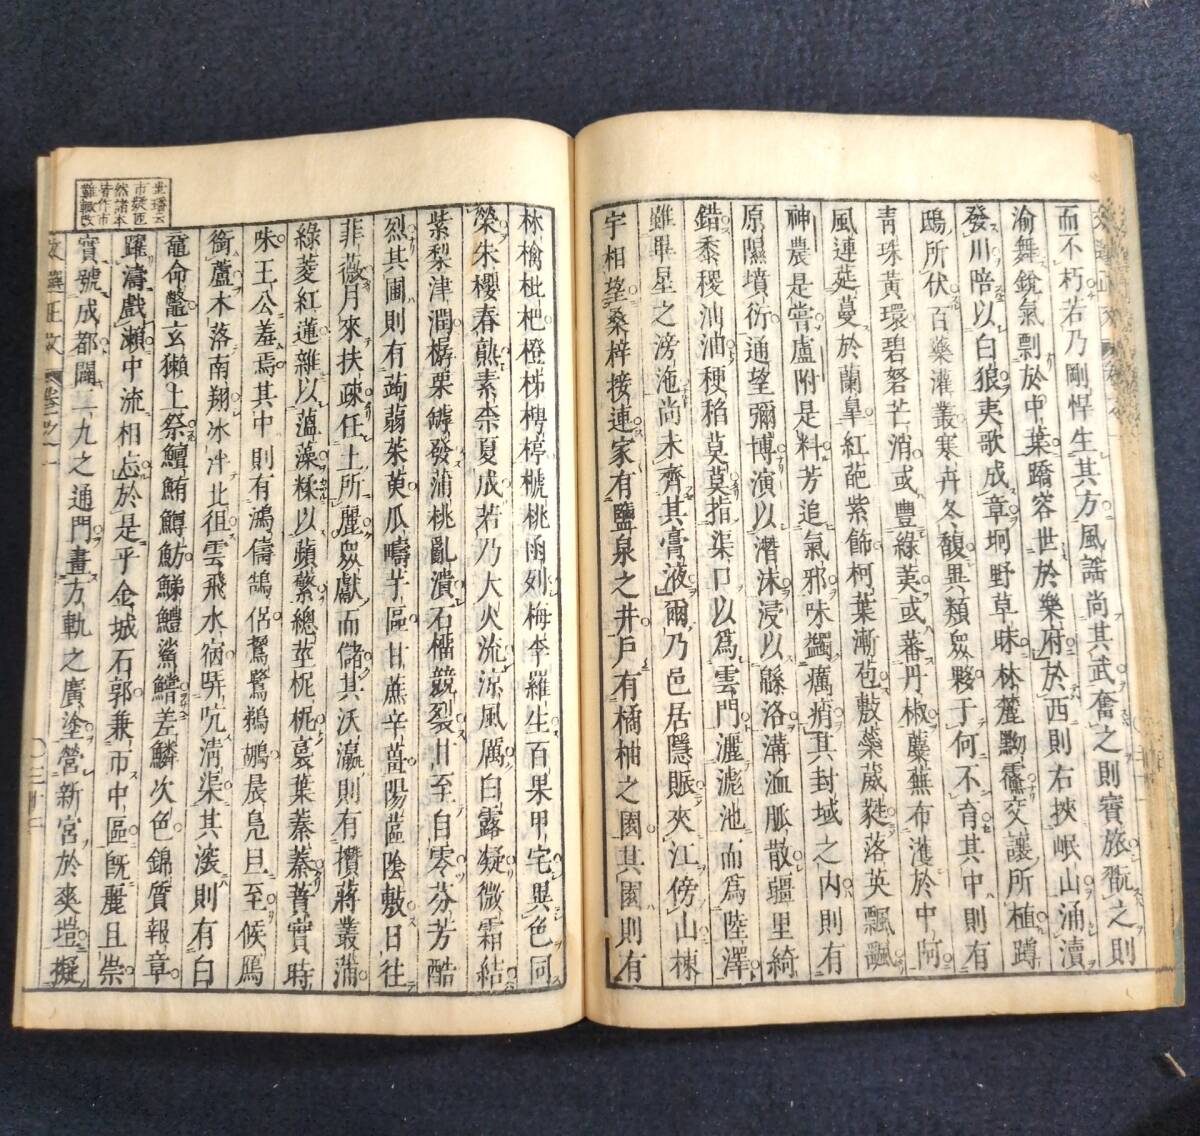 而不朽若乃剛悍生其方風謠尚其武奮之則賨旅翫之則
渝舞銳氣剽於中葉蹻容世於樂府於西則右挾岷山涌瀆
發川陪以白狼夷歌成章坰野草昧林麓黝儵交讓所植蹲
鴟所伏百藥灌叢寒卉冬馥異類衆夥于何不育其中則有
靑珠黃環碧砮芒消或豐綠荑或蕃丹椒蘪蕪布濩於中阿
風連莚蔓於蘭皐紅葩紫飾柯葉漸苞敷蘂葳蕤落英飄颻
神農是嘗盧跗是料芳追氣邪味蠲癘痟其封域之内則有
原隰墳衍通望彌博演以潛沫浸以緜洛溝洫脈散疆里綺
錯黍稷油油稉稻莫莫指渠口以爲雲門灑滮池而爲陸澤
雖畢星之滂沲尚未齊其膏液爾乃邑居隱賑夾江傍山棟
宇相望桑梓接連家有鹽泉之井戶有橘柚之園其園則有
林檎枇杷橙柿梬楟榹桃函列梅李羅生百果甲宅異色同
榮朱櫻春熟素柰夏成若乃大火流涼風厲白露凝微霜結
紫梨津潤樼栗罅發蒲桃亂潰石橊競裂甘至自零芬芳酷
烈其圃則有蒟蒻茱萸瓜疇芋區甘蔗辛薑陽蓲陰敷日往
菲薇月來扶疎任土所麗衆獻而儲其沃瀛則有攢蔣叢蒲
綠菱紅蓮雜以薀藻糅以蘋蘩總莖柅柅裛葉蓁蓁蕡實時
味王公羞焉其中則有鴻儔鵠侶鴛鷺鵜鶘晨鳧旦至候鴈
銜蘆木落南翔冰泮北徂雲飛水宿哢吭淸渠其深則有白
黿命鼈玄獺上祭鱣鮪鱒魴鮷鱧鯊鱨差鱗次色錦質報章
躍濤戲瀨中流相忘於是乎金城石郭兼市中區旣麗且崇
市疑匝
然諸本
皆作市
難輒改
實號成都闢二九之通門畫方軌之廣塗營新宮於爽塏擬
文選正文 卷之一